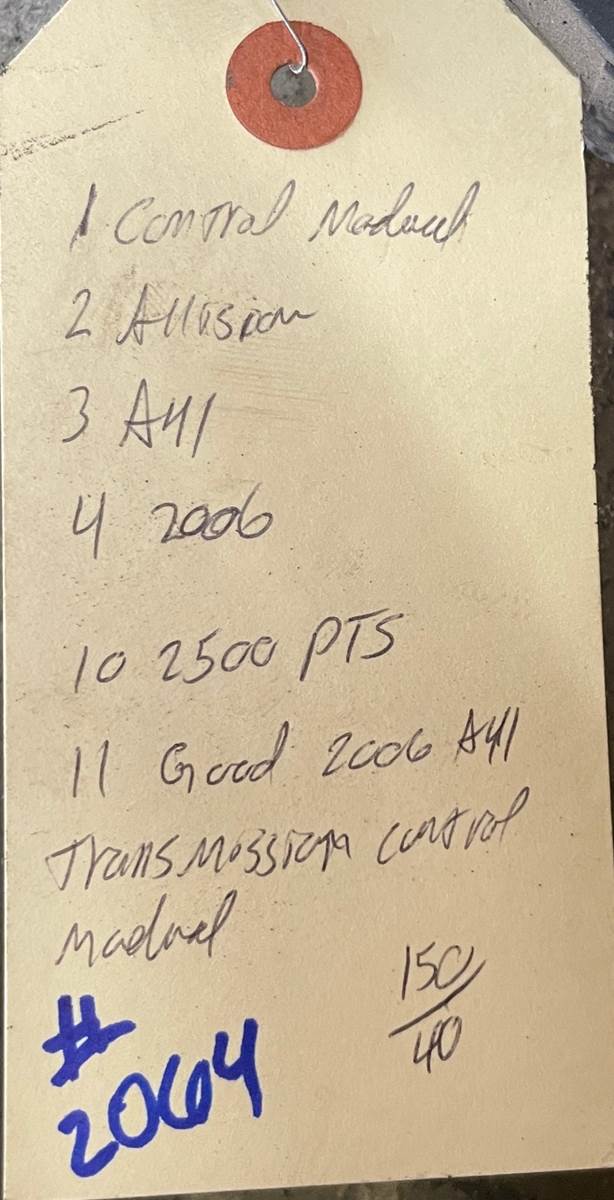 1 Control Moduel
2 Allision
3 A41
4 2006
10 2500 PTS
11 Good 2006 A41
Transmission control
Moduel
150/40
#
2064